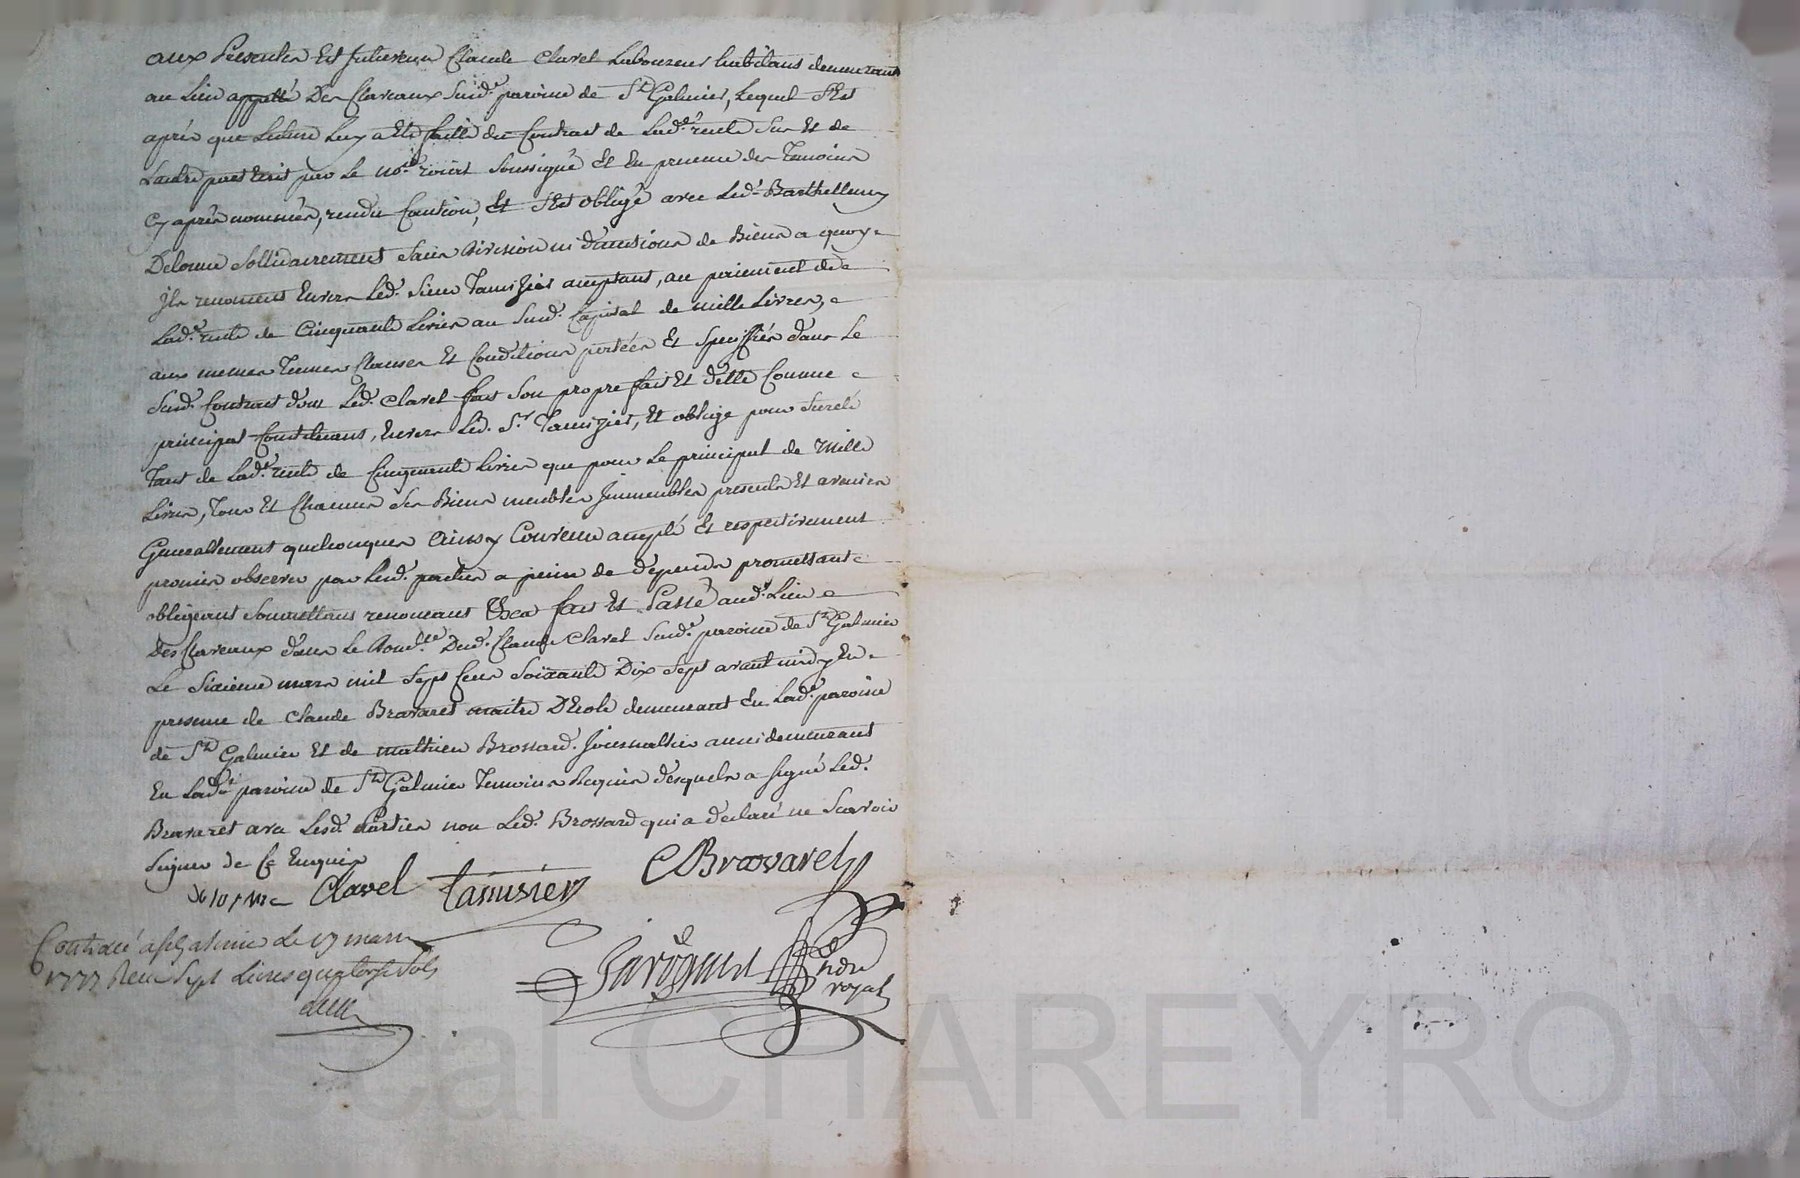 aux presentes Est Intervenu Claude Clavel Laboureur habitant demeurant
au Lieu appellé Des Claveaux Susd. paroisse de St Galmier, Lequel s'Est
après que Lecture Luy a Eté faitte du Contrat de Lad.e rente Sur Et de
Lautre part Ecrit par Le no.re royal Soussigné Et En presence des Temoins
Cy après nommés, rendu Caution, Et s'Est obligé avec Led. Barthellemy
Delorme Sollidairement Sans Division ni d'iscussions de Biens a quoy
Ils renoncent Envers Led. Sieur Tamizier acceptant, au paiement de
Lad.e rente de Cinquante Livres au Susd. Capital de mille Livres,
aux memes Termes Clauses Et Conditions portées Et Speciffiés dans Le
Susd. Contrat dont Led. Clavel fait Son propre fait Et d'ette Comme
principal Constituant, Envers Led. Sr Tamizier, Et oblige pour Sureté
Tant de Lad.e rente de Cinquante Livres que pour Le principal de mille
Livres, Tous Et Chacuns Ses Biens meubles Immeubles presents Et avenirs
Generallement quelconques Ainsy Convenu accepté Et respectivement
promis observer par Lesd. parties a peine de d'epends promettant
obligeant Soumettant renonceant &ca fait Et Passé aud.t Lieu
Des Claveaux dans Le Domlle Dud. Claude Clavel Susd.e paroisse de St Galmier
Le Sixieme mars mil Sept Cent Soixante Dix Sept avant midy En
presence de Claude Bravaret maitre D'Ecole demeurant En Lad.e paroisse
de St Galmier Et de mathieu Brossard Journallier aussi demeurant
En Lad.e paroisse de St Galmier Temoins Requis desquels a signé Led.
Bravaret avec Lesd. Parties non Led. Brossard qui a declaré ne Scavoir
Signer de Ce Enquis
Delorme Clavel Tamisier CBravaret
Controllé a st galmier le 17 mars
1777 Reçu Sept Livres quatorze Sols
no.re
royal
Pascal CHAREYRON